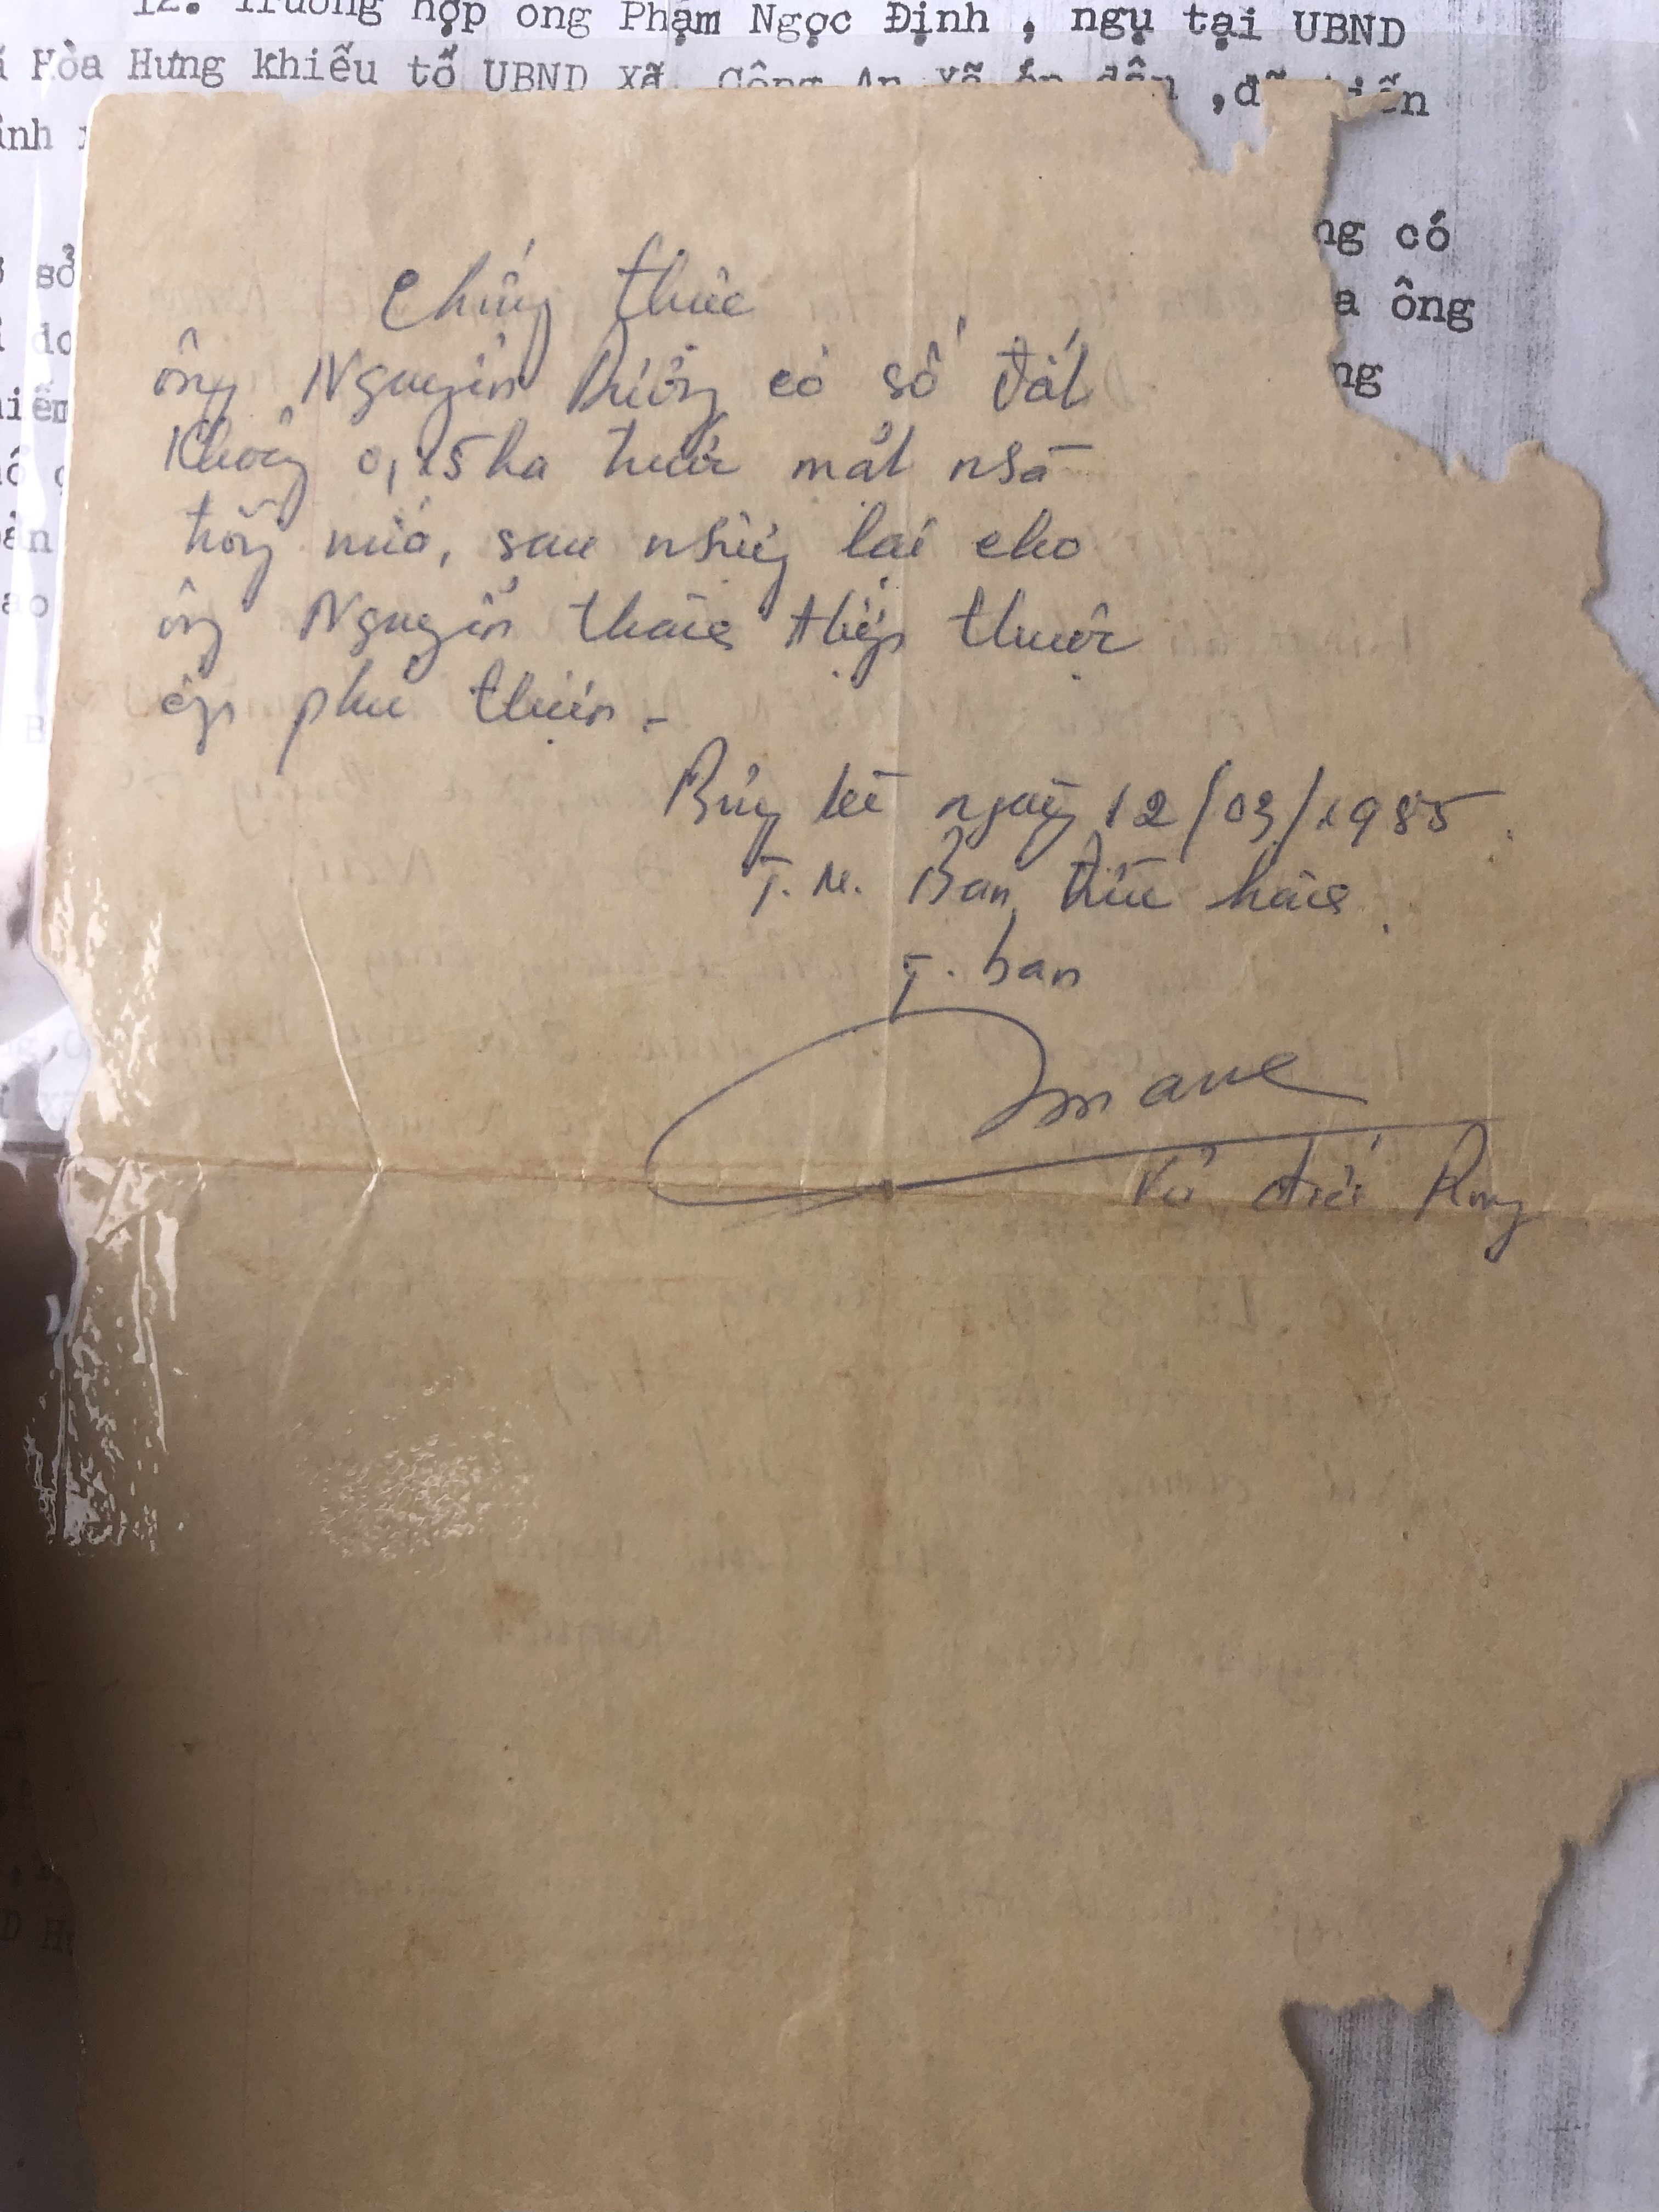 12. Trường hợp ông Phạm Ngọc Định , ngụ tại UBND
Hòa Hưng khiếu tố UBND Xã, Công An Xã
ng có
sở
a ông
ng
Chứng thực
ông Nguyễn Dưỡng có số đất
Khoảng 0,15ha trước mặt nhà
trồng mía, sau nhượng lại cho
ông Nguyễn thành Hiệp thuộc
ấp phú thiện -
Bưng kè ngày 12/03/1985
T.M. Ban
T. ban
Võ